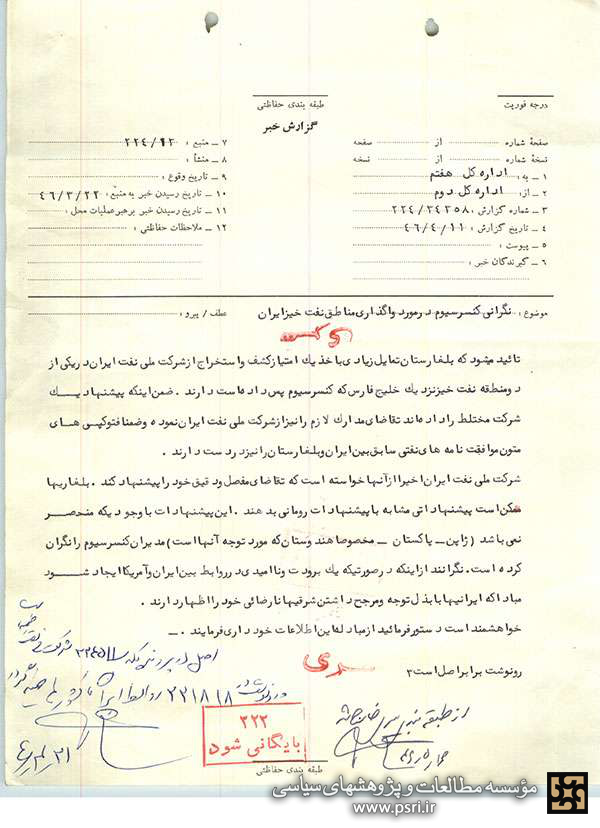 درجه فوریت
طبقه بندی حفاظتی
گزارش خبر
صفحهٔ شماره از صفحه
نسخهٔ شماره از نسخه
۱ ـ به : اداره کل هفتم
۲ ـ از : اداره کل دوم
۳ ـ شماره گزارش : ۲۲۴/۳۴۳۵۸
۴ ـ تاریخ گزارش : ۴۶/۴/۱۱
۵ ـ پیوست :
۶ ـ گیرندگان خبر :
۷ ـ منبع : ۲۲۴/۱۲
۸ ـ منشأ :
۹ ـ تاریخ وقوع :
۱۰ ـ تاریخ رسیدن خبر به منبع : ۴۶/۳/۲۲
۱۱ ـ تاریخ رسیدن خبر برهبر عملیات محل :
۱۲ ـ ملاحظات حفاظتی :
موضوع : نگرانی کنسرسیوم در مورد واگذاری مناطق نفت خیز ایران عطف / پیرو :
تائید میشود که بلغارستان تمایل زیادی باخذ یک امتیاز کشف و استخراج از شرکت ملی نفت ایران در یکی از
دو منطقه نفت خیز نزدیک خلیج فارس که کنسرسیوم پس داده است دارند . ضمن اینکه پیشنهاد یک
شرکت مختلط را داده اند تقاضای مدارک لازم را نیز از شرکت ملی نفت ایران نموده و ضمنا فتوکپی های
متون موافقت نامه های نفتی سابق بین ایران و بلغارستان را نیز در دست دارند .
شرکت ملی نفت ایران اخیرا از آنها خواسته است که تقاضای مفصل و دقیق خود را پیشنهاد کند . بلغاریها
ممکن است پیشنهاداتی مشابه با پیشنهادات رومانی بدهند . این پیشنهادات با وجودیکه منحصر
نمی باشد ( ژاپن ـ پاکستان ـ مخصوصا هندوستان که مورد توجه آنها است ) مدیران کنسرسیوم را نگران
کرده است . نگرانند از اینکه در صورتیکه یک برودت و ناامیدی در روابط بین ایران و آمریکا ایجاد شود
مبادا که ایرانیها با بذل توجه و مرجح داشتن شرقیها نارضائی خود را اظهار دارند .
خواهشمند است دستور فرمائید از مبادله این اطلاعات خودداری فرمایند . ـ
رونوشت برابر اصل است ۳
سری
اصل در پرونده
۲۲۱۸۱۸ روابط ایران با
از طبقه بندی سری خارج شد
۳۲۲
بایگانی شود
طبقه بندی حفاظتی
مؤسسه مطالعات و پژوهشهای سیاسی
www.psri.ir